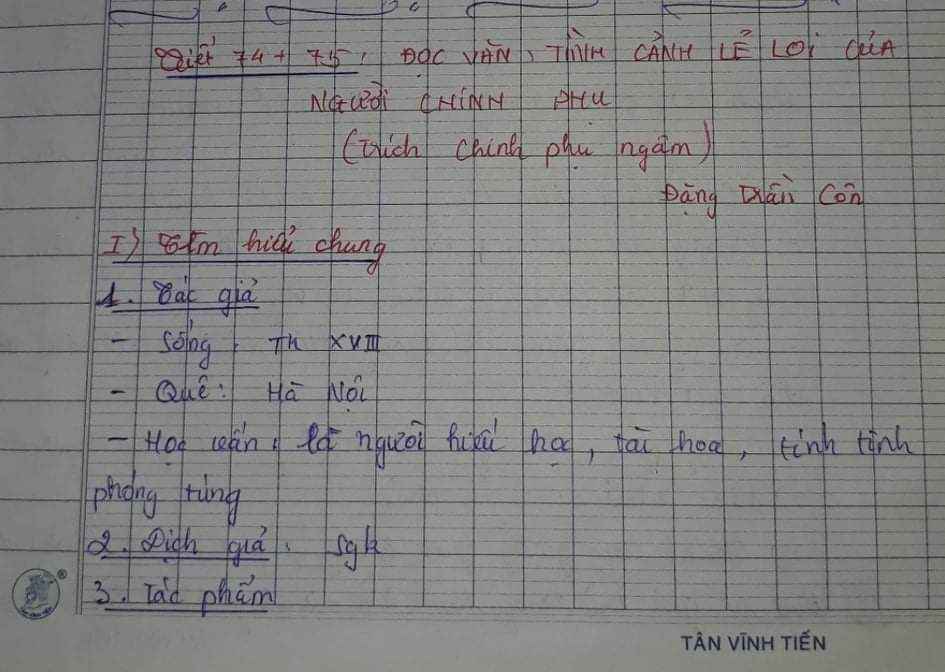 Tiết 74 + 75: ĐỌC VĂN: TÌNH CẢNH LẺ LOI CỦA
NGƯỜI CHINH PHỤ
(Trích Chinh phụ ngâm)
Đặng Trần Côn
I) Tìm hiểu chung
1. Tác giả
- Sống: TK XVIII
- Quê: Hà Nội
- Học vấn: là người hiếu học, tài hoa, tính tình
phóng túng
2. Dịch giả: sgk
3. Tác phẩm
TÂN VĨNH TIẾN